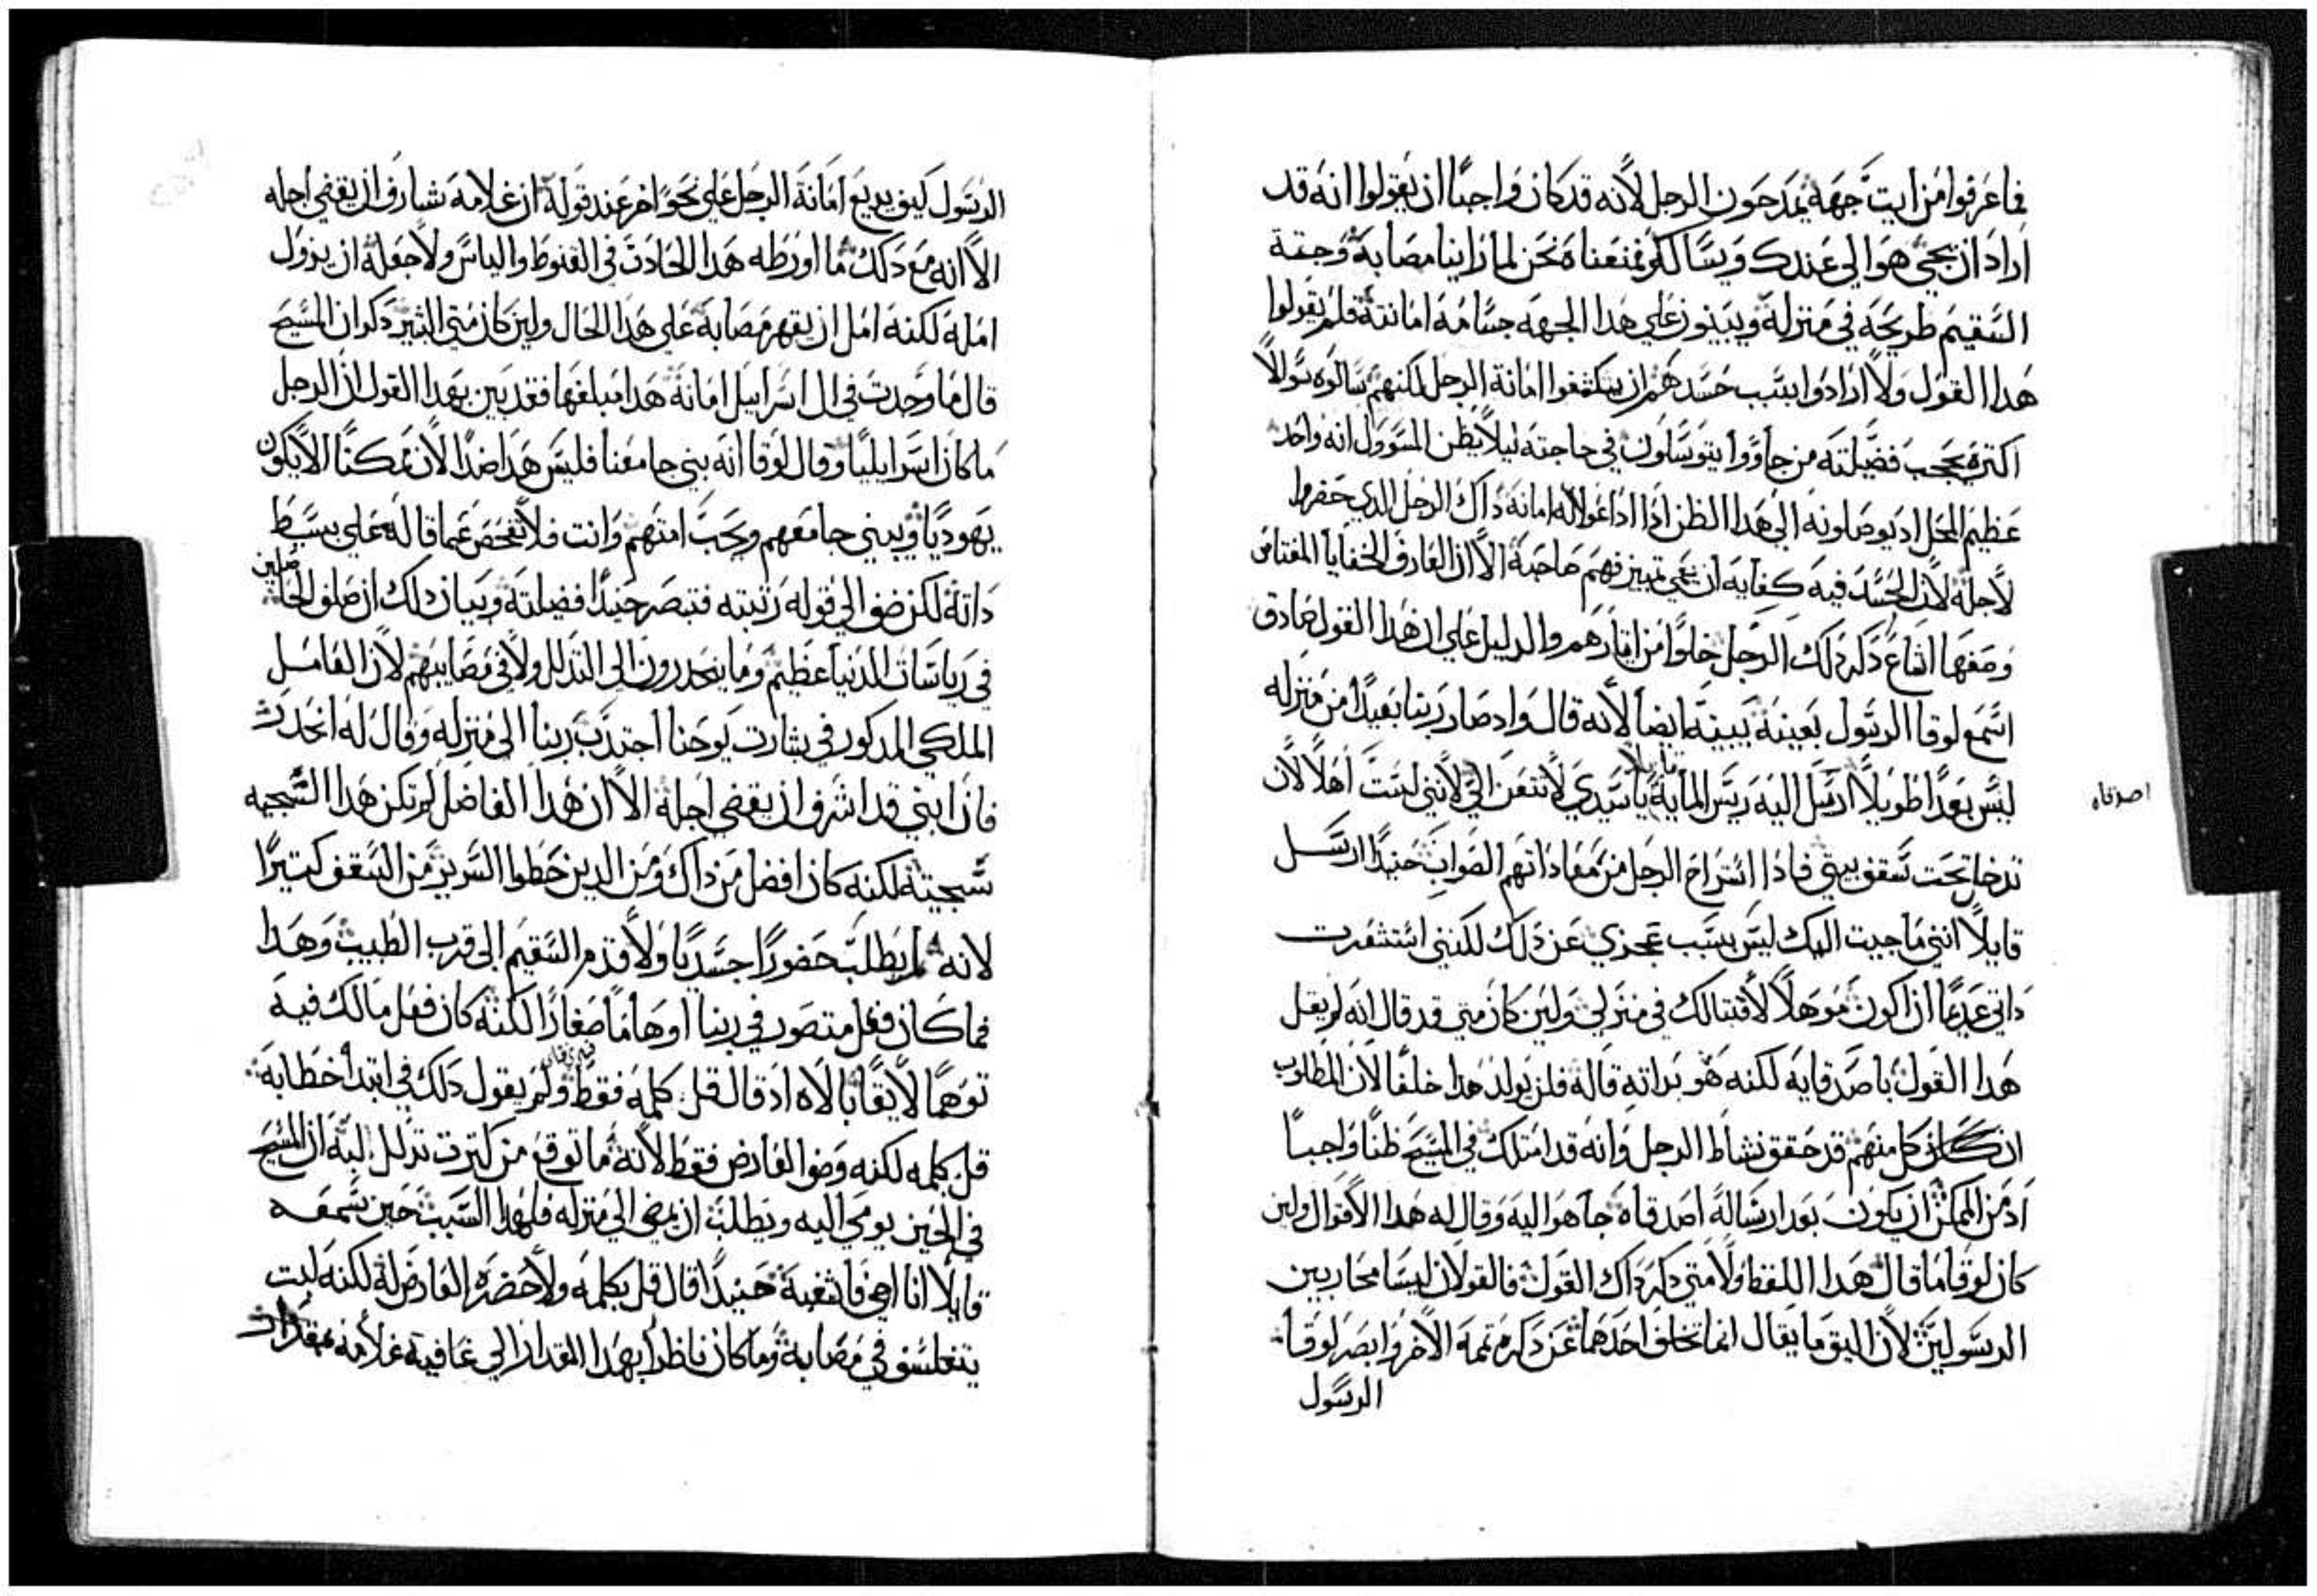 فاعرفوا من ايت جهة يمدحون الرجل لانه قد كان واجبًا ان يقولوا انه قد
اراد ان يجي هو الي عندك ويسالك فمنعناه نحن لما راينا مصابه وجتة
السقيم طريحه في منزله ويبينون علي هدا الجهه جسامة امانته فلم يقولوا
هدا القول ولا ارادوا بسبب حسدهم ان يكشفوا امانة الرجل لكنهم سالوه سوالاً
اكتره يحجب فضيلته من جاووا يتوسلون في حاجته ليلا يظن المسوول انه واحد
عظيم المحل اد يوصلونه الي هدا الظن ادا اداعوا له امانة داك الرجل الدي حضروا
لاجله لان الحسد فيه كفايه ان يعمي تمييز فهم صاحبه الا ان العارف الخفايا المعتاص
وصفها اشاع دكر دلك الرجل خلوًا من ايتارهم والدليل علي ان هدا القول صادق
اسمع لوقا الرسول بعينه يبينه ايضا لانه قال واد صار ربنا بعيدًا من منزله
ليس بعدًا طويلاً ارسل اليه ريس المايه قايلا يا سيدي لا تتعن الي لانني لست اهلاً لان
تدخل تحت سقف بيتي فادا استراح الرجل من مفاداتهم الصواب حنيدًا ارسل
قايلاً انني ما جيت اليك ليس بسبب عجزي عن دلك لكنني استشعرت
داتي عديمًا ان اكون موهلاً لاقتبالك في منزلي ولين كان متي قد قال انه لم يقل
هدا القول باصدقايه لكنه هو بداته قاله فلن يولد هدا خلفًا لان المطلوب
ان كان كل منهم قد حقق نشاط الرجل وانه قد امتلك في المسيح ظنًا واجبًا
اد من الممكن ان يكون بعد ارساله اصدقاه جا هو اليه وقال له هدا الاقوال ولين
كان لوقا ما قال هدا اللفظ ولا متي دكر داك القول فالقولان ليسا محاربين
الرسولين لان اليق ما يقال انما تخلف احدهما عن دكره تممه الاخر وابصر لوقا
الرسول
اصدقاه
الرسول كيف يديع امانة الرجل علي نحوًا اخر عند قوله ان غلامه شارف ان يقضي اجله
الا انه مع دلك ما اورطه هدا الحادت في القنوط والياس ولا جعله ان يزول
امله لكنه امل ان يقهر مصابه علي هدا الحال ولين كان متي البشير دكر ان المسيح
قال ما وجدت في ال اسراييل امانة هدا مبلغها فقد بين بهدا القول ان الرجل
ما كان اسراييليًا وقال لوقا انه بني جامعنا فليس هدا ضدًا لان ممكنًا الا يكون
يهوديًا ويبني جامعهم ويحب امتهم وانت فلا تفحص عما قاله علي بسيط
داته لكن ضف الي قوله رتبته فتبصر حنيدًا فضيلته وبيان دلك ان صلف الحاصلين
في رياسات الدنيا عظيم وما ينحدرون الي التدلل ولا في مصايبهم لان العامل
الملكي المدكور في بشارت يوحنا اجتدب ربنا الي منزله وقال له انحدر
فان ابني قد اشرف ان يقضي اجله الا ان هدا الفاضل لم تكن هدا السجيه
سجيته لكنه كان افضل من داك ومن الدين حطوا السرير من السقف كتيرًا
لانه لم يطلب حضورًا جسديًا ولا قدم السقيم الي قرب الطبيب وهدا
فما كان فعل متصور في ربنا اوهامًا صغارًا لكنه كان فعل مالك فيه
توهمًا لايقًا بالاه اد قال قل كلمه فقط ولم يقول دلك في ابتدا خطابه
قل كلمه لكنه وصف العارض فقط لانه ما توقع من كترت تدلل لبه ان المسيح
في الحين يومي اليه ويطلب ان يمضي الي منزله فلهدا السبب حين سمعه
قايلاً انا امضي فاشفيه حنيدًا قال قل بكلمه ولا حضره العارض له لكنه لبت
يتفلسف في مصابه وما كان ناظرًا بهدا المقدار الي عافية غلامه بمقدار